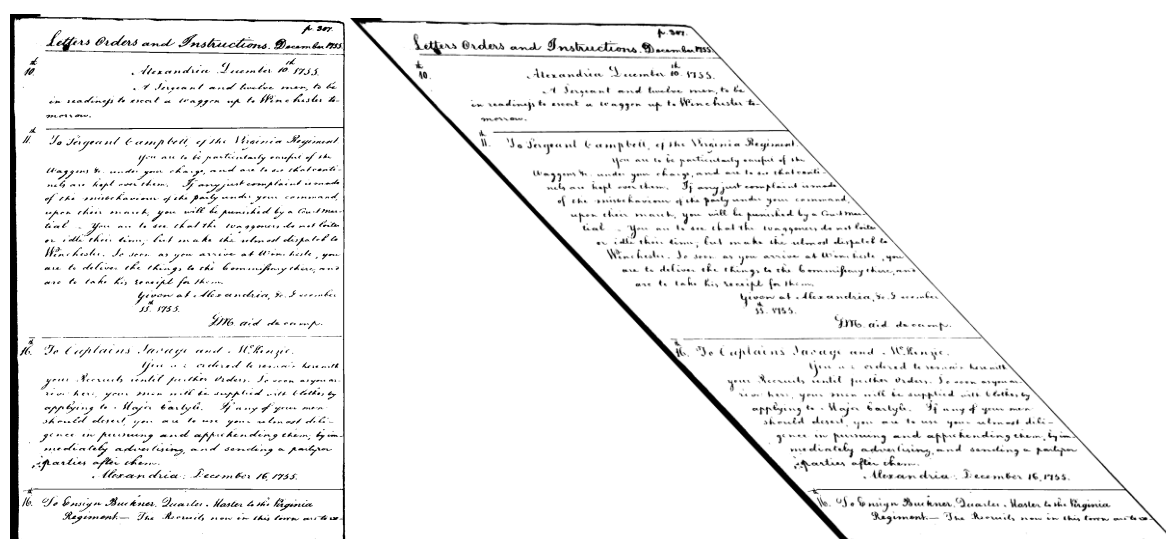 p. 307.
Letters Orders and Instructions. December 1755.
10.th
Alexandria December 10.th 1755.
A Sergeant and twelve men, to be
in readiness to escort a waggon up to Winchester to-
morrow.
11.th To Sergeant Campbell, of the Virginia Regiment
You are to be particularly careful of the
Waggons &c. under your charge, and are to see that centi-
nels are kept over them. If any just complaint is made
of the misbehaviour of the party under your command,
upon their march, you will be punished by a Court Mar-
tial. You are to see that the waggoners do not loiter
or idle their time, but make the utmost dispatch to
Winchester. So soon as you arrive at Winchester, you
are to deliver the things to the Commissary there, and
are to take his receipt for them.
Given at Alexandria, &c. December
11.th 1755.
GM. aid de camp.
16.th To Captains Savage and McKenzie.
You are ordered to remain here with
your Recruits until further Orders. So soon as you ar-
rive here, your men will be supplied with Clothes by
applying to Major Carlyle. If any of your men
should desert, you are to use your utmost dili-
gence in pursuing and apprehending them, by im-
mediately advertising, and sending a party or
parties after them.
Alexandria: December 16, 1755.
16.th To Ensign Buckner, Quarter-Master to the Virginia
Regiment — The Recruits now in this town are to re-
p. 307.
Letters Orders and Instructions. December 1755.
10.th
Alexandria December 10.th 1755.
A Sergeant and twelve men, to be
in readiness to escort a waggon up to Winchester to-
morrow.
11.th To Sergeant Campbell, of the Virginia Regiment
You are to be particularly careful of the
Waggons &c. under your charge, and are to see that centi-
nels are kept over them. If any just complaint is made
of the misbehaviour of the party under your command,
upon their march, you will be punished by a Court Mar-
tial. You are to see that the waggoners do not loiter
or idle their time, but make the utmost dispatch to
Winchester. So soon as you arrive at Winchester, you
are to deliver the things to the Commissary there, and
are to take his receipt for them.
Given at Alexandria, &c. December
11.th 1755.
GM. aid de camp.
16.th To Captains Savage and McKenzie.
You are ordered to remain here with
your Recruits until further Orders. So soon as you ar-
rive here, your men will be supplied with Clothes by
applying to Major Carlyle. If any of your men
should desert, you are to use your utmost dili-
gence in pursuing and apprehending them, by im-
mediately advertising, and sending a party or
parties after them.
Alexandria: December 16, 1755.
16.th To Ensign Buckner, Quarter-Master to the Virginia
Regiment — The Recruits now in this town are to re-